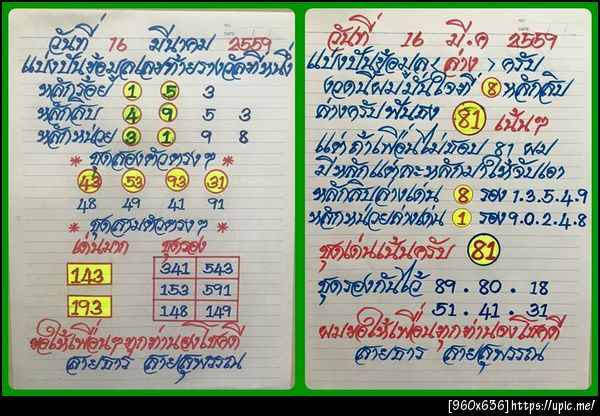 วันที่ 16 มีนาคม 2559
แบ่งปันข้อมูลเลขท้ายรางวัลที่หนึ่ง
หลักร้อย 1 5 3
หลักสิบ 4 9 5 3
หลักหน่วย 3 1 9 8
* ชุดสองตัวตรงๆ *
43 53 93 31
48 49 41 91
* ชุดสามตัวตรงๆ *
เด่นมาก ชุดรอง
143 341 543
153 591
193 148 149
ขอให้เพื่อนๆทุกท่านจงโชคดี
สายธาร สายสุพรรณ
วันที่ 16 มี.ค 2559
แบ่งปันข้อมูล < ล่าง > ครับ
งวดนี้ผมมั่นใจที่ 8 หลักสิบ
ล่างครับฟันธง 81 เน้นๆ
แต่ถ้าเพื่อนไม่ชอบ 81 ผม
มีหลักแต่ละหลักมาให้จับเอา
หลักสิบล่างเด่น 8 รอง 1.3.5.4.9
หลักหน่วยล่างเด่น 1 รอง 9.0.2.4.8
ชุดเด่นเน้นครับ 81
ชุดรองกันไว้ 89 . 80 . 18
51 . 41 . 31
ผมขอให้เพื่อนทุกท่านจงโชคดี
สายธาร สายสุพรรณ
[960x636]https://upic.me/